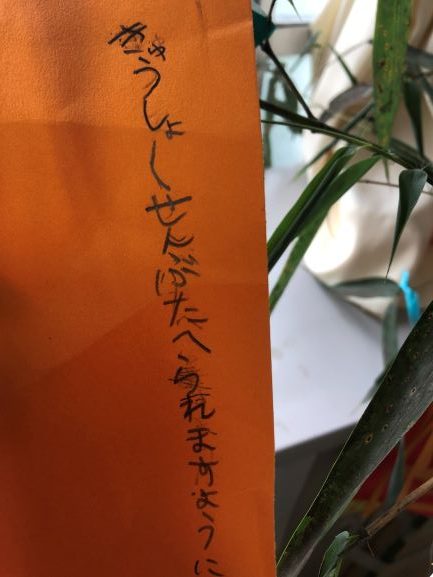 きゅうしょくせんぶたべられますように